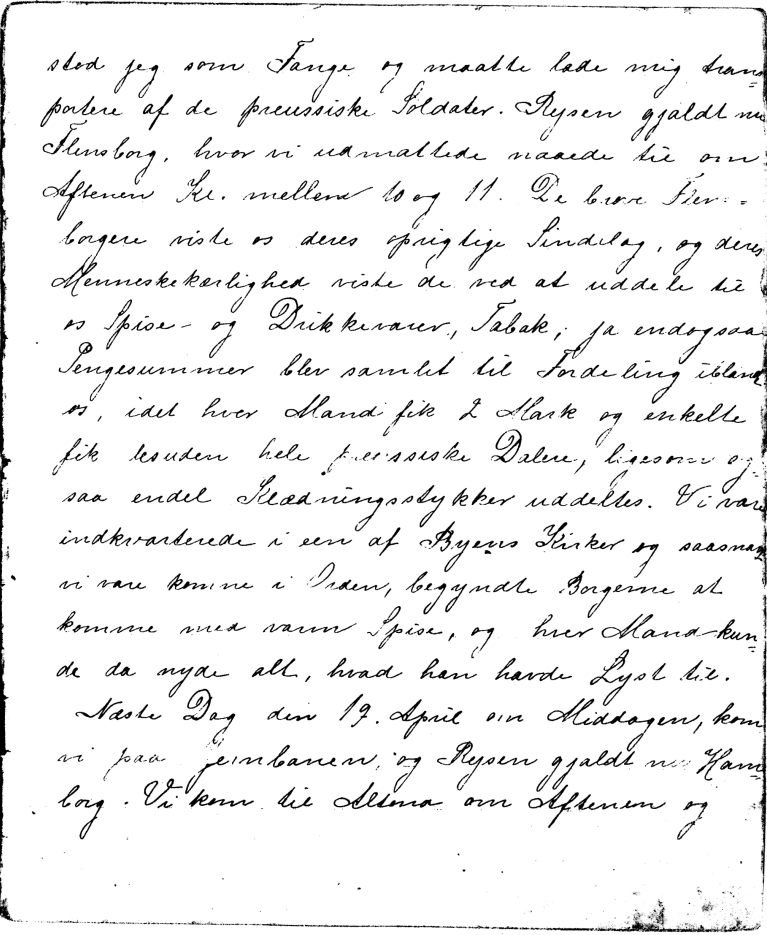 stod jeg som Fange og maatte lade mig trans=
portere af de preussiske Soldater. Rejsen gjaldt nu
Flensborg, hvor vi udmattede naaede til om
Aftenen Kl. mellem 10 og 11. De brave Flens=
borgere viste os deres oprigtige Sindelag, og deres
Menneskekærlighed viste de ved at uddele til
os Spise- og Drikkevarer, Tabak, ja endogsaa
Pengesummer blev samlet til Fordeling iblandt
os, idet hver Mand fik 2 Mark og enkelte
fik desuden hele preussiske Dalere, ligesom og=
saa endel Klædningsstykker uddeltes. Vi vare
indkvarterede i een af Byens Kirker og saasnart
vi vare komne i Orden, begyndte Borgerne at
komme med varm Spise, og hver Mand kun=
de da nyde alt, hvad han havde Lyst til.
Næste Dag den 19. April om Middagen, kom
vi paa Jernbanen, og Rejsen gjaldt nu Ham=
borg. Vi kom til Altona om Aftenen og